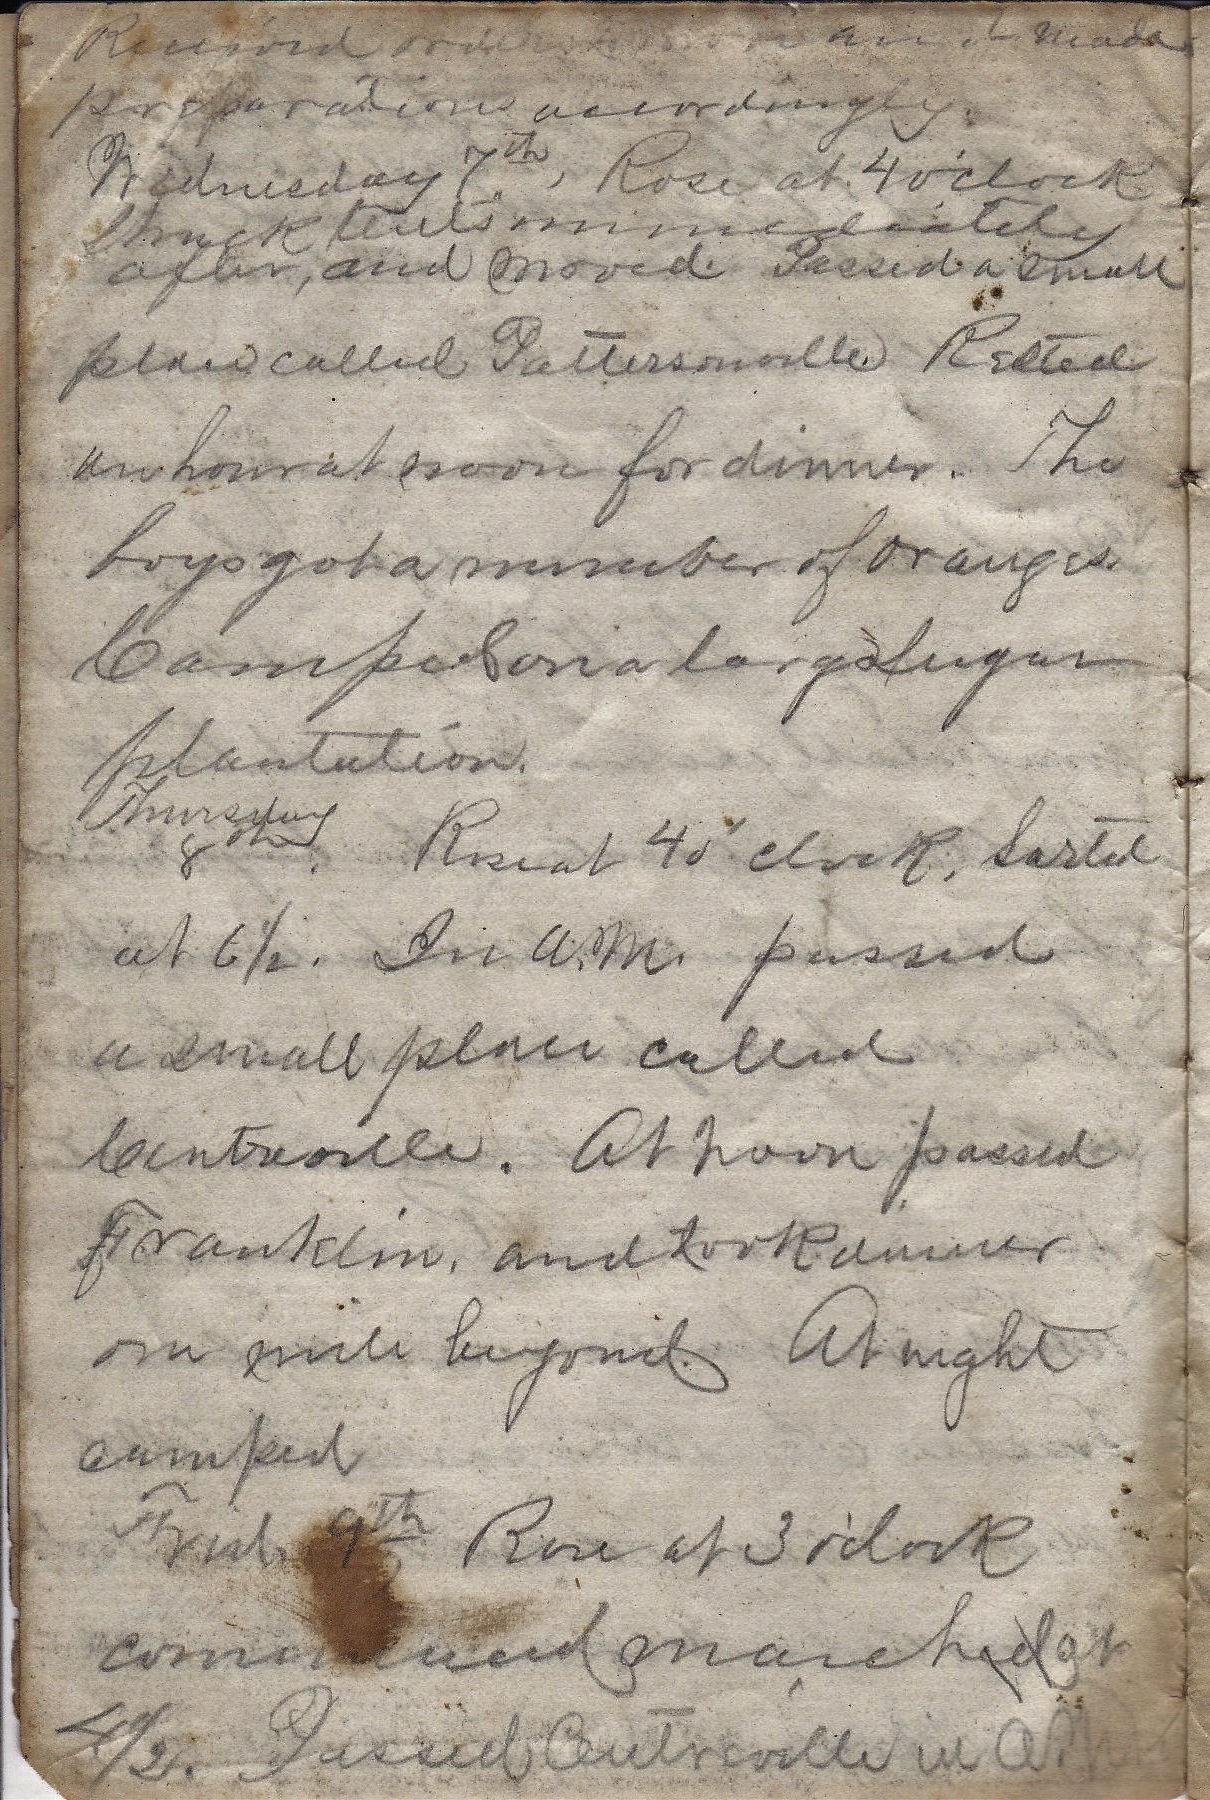 Received orders to move and made
preparations accordingly.
Wednesday 7th, Rose at 4 o'clock
Struck tents immediately
after, and moved. Passed a small
place called Pattersonville. Rested
an hour at noon for dinner. The
boys got a number of oranges.
Camped on a large Sugar
plantation.
Thursday
8th. Rose at 4 o'clock, Sarted
at 6 1/2. In A.M. passed
a small place called
Centreville. At noon passed
Franklin, and took dinner
one mile beyond. At night
camped
Frid. 9th Rose at 3 o'clock
commenced marched at
4 1/2. Passed Centreville in A.M.